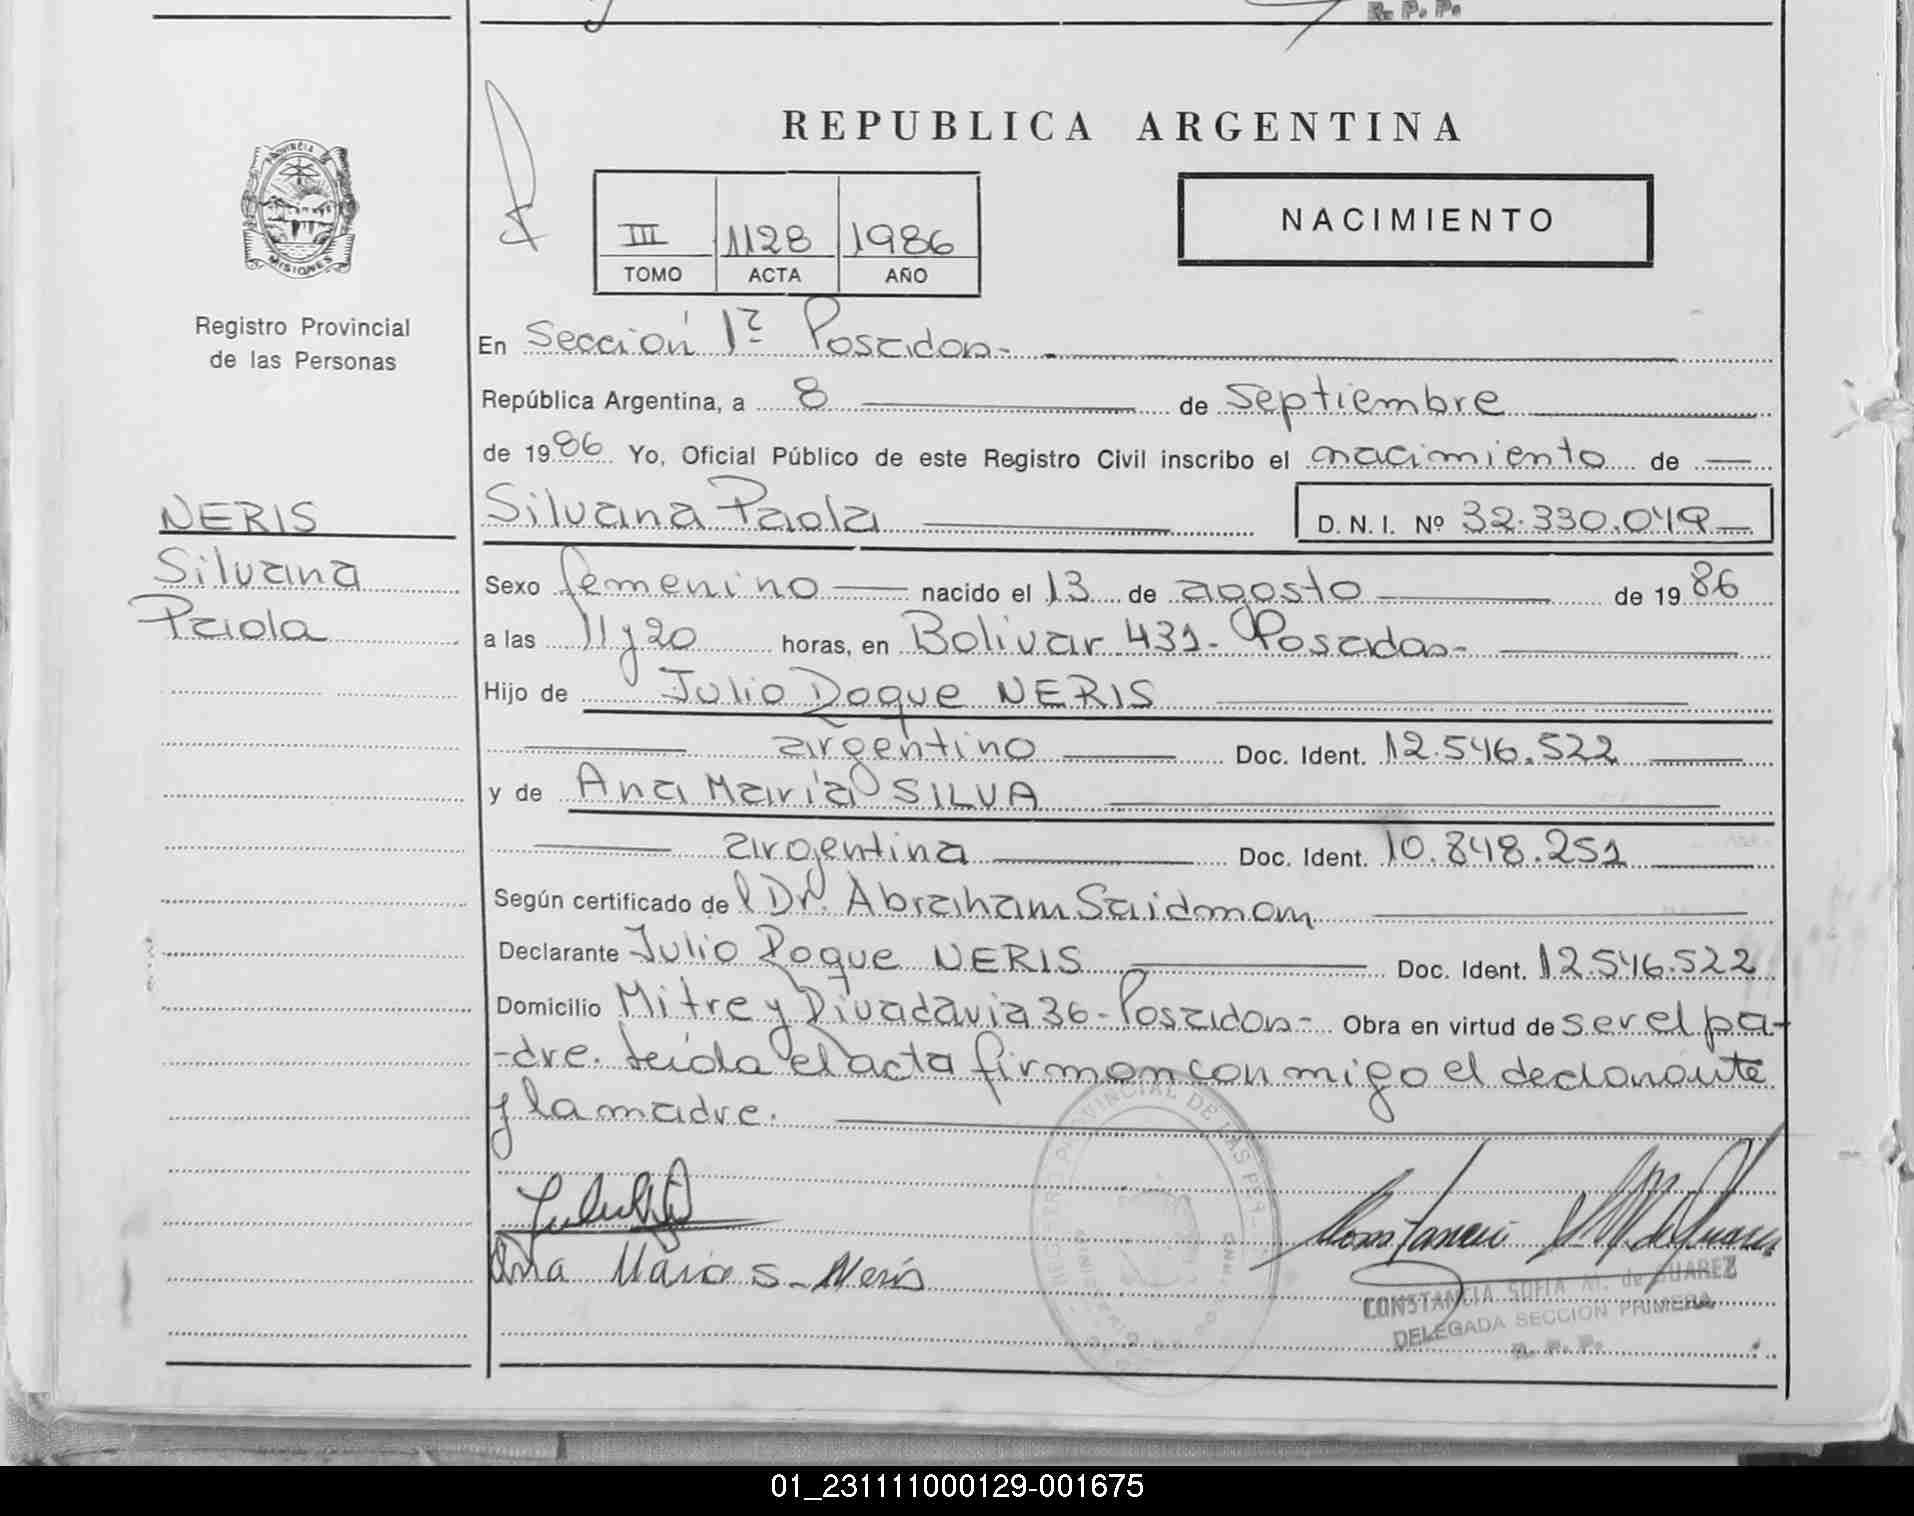 R. P. P.
REPUBLICA ARGENTINA
PROVINCIA DE
MISIONES
Registro Provincial
de las Personas
III 1128 1986
TOMO ACTA AÑO
NACIMIENTO
En Sección 1ª Posadas-
República Argentina, a 8 de septiembre
de 1986 Yo, Oficial Público de este Registro Civil inscribo el nacimiento de
NERIS
Silvana
Paola
Silvana Paola D. N. I. Nº 32.330.049
Sexo femenino nacido el 13 de agosto de 1986
a las 11 y 20 horas, en Bolivar 431- Posadas-
Hijo de Julio Roque NERIS
argentino Doc. Ident. 12.546.522
y de Ana María SILVA
argentina Doc. Ident. 10.848.251
Según certificado del Dr. Abraham Saidman
Declarante Julio Roque NERIS Doc. Ident. 12.546.522
Domicilio Mitre y Rivadavia 36- Posadas- Obra en virtud de ser el pa-
-dre. Leída el acta firman conmigo el declarante
y la madre.
Ana Maria S. Neris
CONSTANCIA SOFIA M. de JUAREZ
DELEGADA SECCION PRIMERA
R. P. P.
01_231111000129-001675